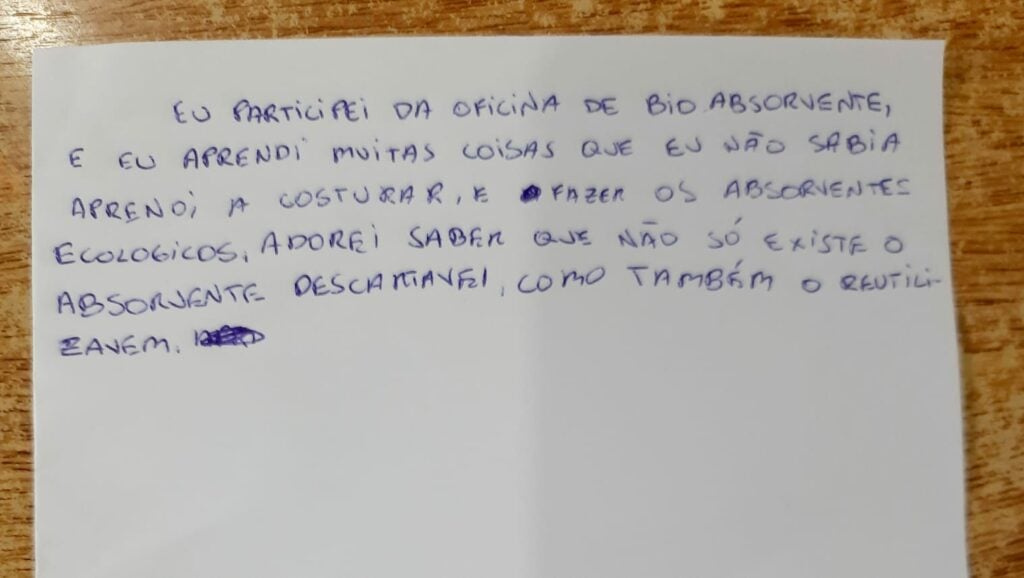 EU PARTICIPEI DA OFICINA DE BIO ABSORVENTE,
E EU APRENDI MUITAS COISAS QUE EU NÃO SABIA
APRENDI A COSTURAR, E FAZER OS ABSORVENTES
ECOLOGICOS. ADOREI SABER QUE NÃO SÓ EXISTE O
ABSORVENTE DESCARTAVEI, COMO TAMBÉM O REUTILI-
ZAVEM.